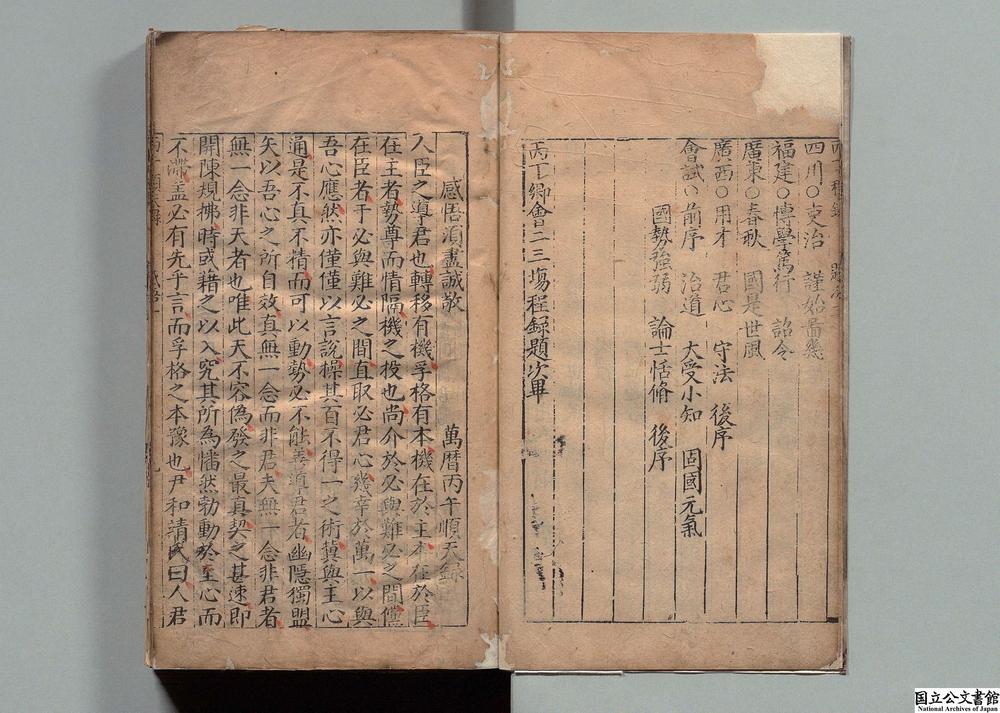 四川○吏治　謹始審幾
福建○博學篤行　詔令
廣東○春秋　國是世風
廣西○用才　君心　守法　後序
會試○前序　治道　大受小知　固國元氣
國勢強弱　論士恬脩　後序
丙丁鄉會二三場程錄題次畢
感悟須盡誠敬　萬曆丙午順天錄
人臣之導君也轉移有機孚格有本機在於主本在於臣
在主者勢尊而情隔機之投也尚介於必與難必之間儻
在臣者于必與難必之間直取必君心幾幸於萬一以與
吾心應然亦僅僅以言說操其百不得一之術冀與主心
通是不真不情而可以動勢必不能善導君者幽隱獨盟
矢以吾心之所自效真無一念而非君夫無一念非君者
無一念非天者也唯此天不容偽發之最真契之甚速即
開陳規拂時或藉之以入究其所為幡然勃動於至心而
不滯盖必有先乎言而孚格之本豫也尹和靖氏曰人君
国立公文書館
National Archives of Japan